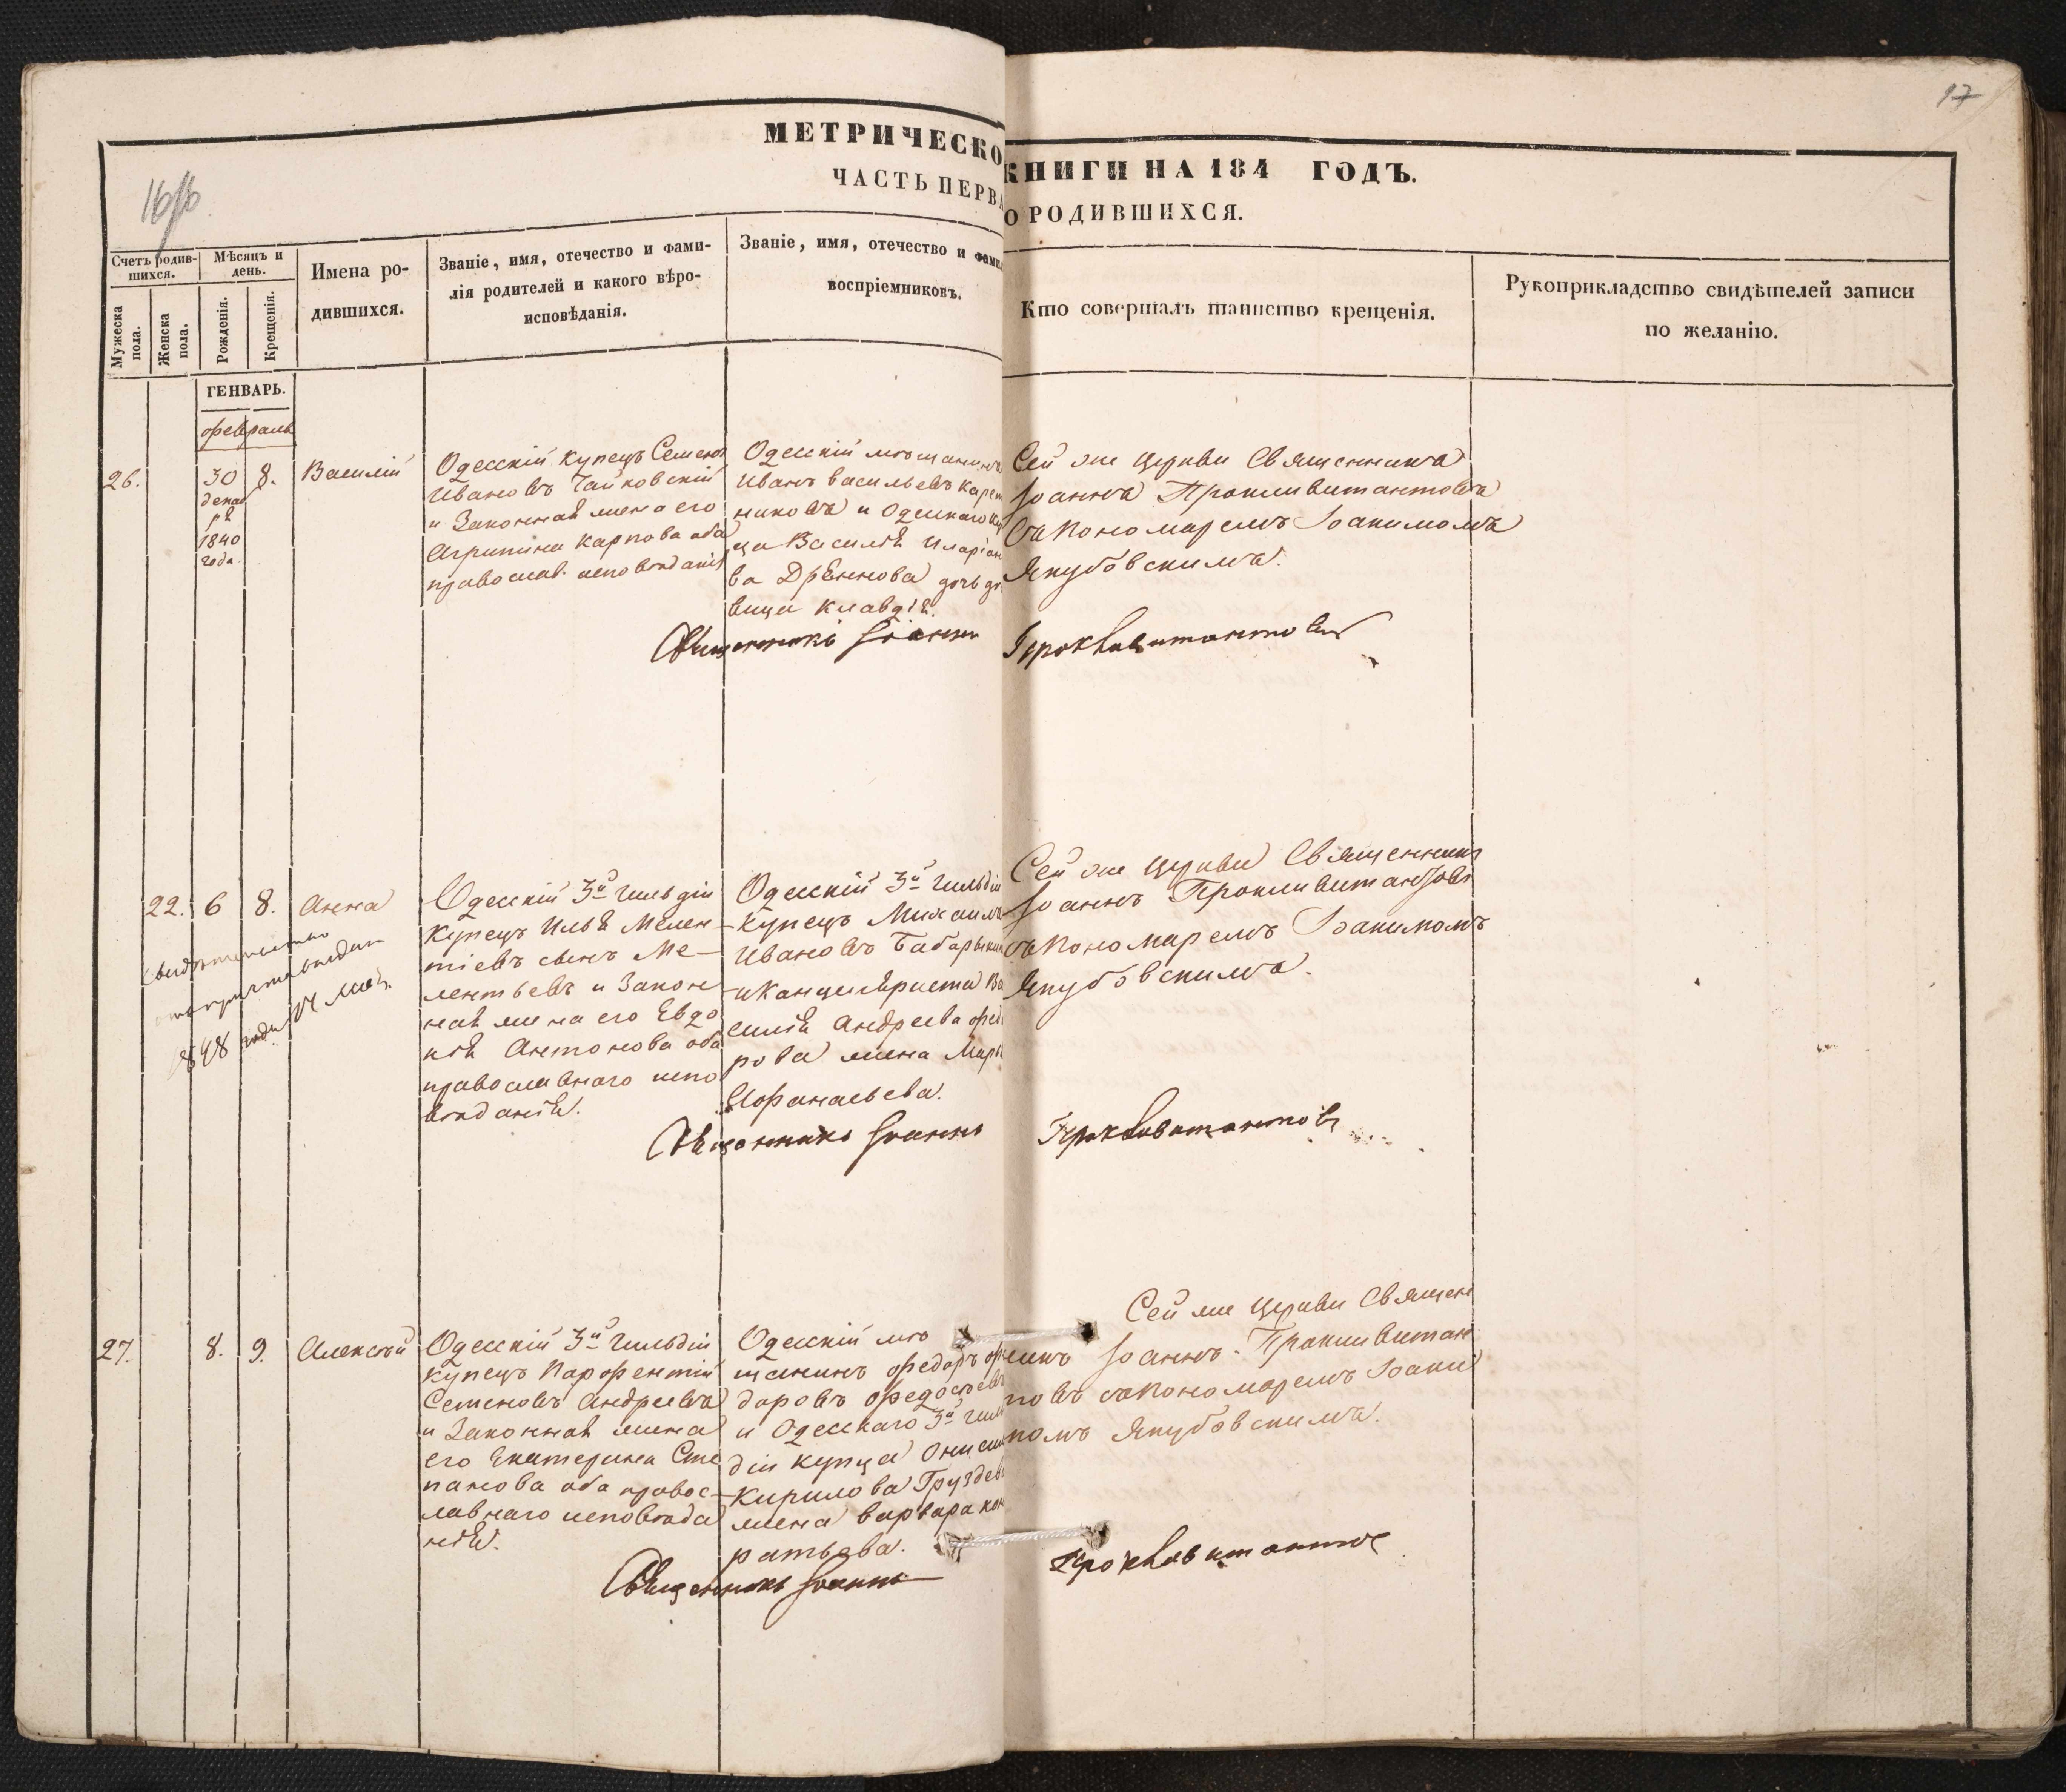 17
МЕТРИЧЕСКО КНИГИ НА 184 ГОДЪ.
ЧАСТЬ ПЕРВА О РОДИВШИХСЯ.
16
Счетъ родив-
шихся.
Мужеска пола.
Женска пола.
Мѣсяцъ и
день.
Рожденія.
Крещенія.
Имена ро-
дившихся.
Званіе, имя, отечество и фами-
лія родителей и какого вѣро-
исповѣданія.
Званіе, имя, отечество и фами
воспріемниковъ.
Кто совершалъ таинство крещенія.
Рукоприкладство свидѣтелей записи
по желанію.
ГЕНВАРЬ.
февраль
26.
30
декаб
ря
1840
года.
8.
Василій
Одесскій купецъ Семенъ
Ивановъ Чайковскій
и Законная жена его
Агрипина Карпова оба
православ. исповѣданія
Одесскій мѣщанинъ
Иванъ Васильевъ Карет
никовъ и Одесскаго куп
ца Василія Иларіон
ва Дрѣннова дочь дѣ
вица Клавдія.
Сей же Церкви Священникъ
Іоаннъ Прокливитантовъ
съ Пономаремъ Іоакимомъ
Якубовскимъ.
Священникъ Іоаннъ Прокливитантовъ
22.
6
8.
Анна
Свидѣтельство
1848 года 14 Мая.
Одесскій 3й гильдіи
купецъ Илья Мелен-
тіевъ сынъ Ме-
лентьевъ и Закон-
ная жена его Евдо
кія Антонова оба
православнаго испо
вѣданія.
Одесскій 3й гильдіи
купецъ Михаилъ
Ивановъ Бабарыкин
и Канцеляриста Ва
силія Андреева Федо
рова жена Марь
Афанасьева.
Сей же Церкви Священникъ
Іоаннъ Прокливитантовъ
съ Пономаремъ Іоакимомъ
Якубовскимъ.
Священникъ Іоаннъ Прокливитантовъ
27.
8.
9.
Алексѣй
Одесскій 3й гильдіи
купецъ Парфентій
Семеновъ Андреевъ
и Законная жена
его Екатерина Сте
панова оба правос-
лавнаго исповѣда
нія.
Одесскій мѣ
щанинъ Федоръ Фе
доровъ Федосѣевъ
и Одесскаго 3й гиль
діи купца Онисим
Кирилова Груздев
жена Варвара Кон
ратьева.
Сей же Церкви Священ
никъ Іоаннъ Прокливитан
товъ съ Пономаремъ Іоаки
момъ Якубовскимъ.
Священникъ Іоаннъ Прокливитантов